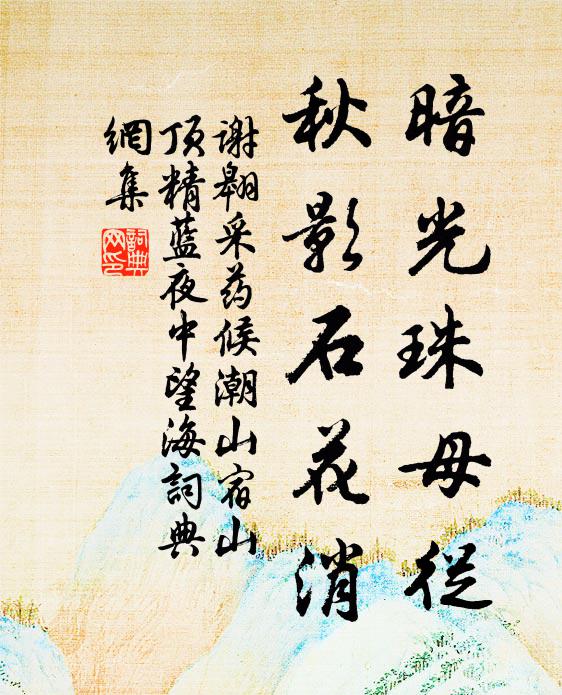 暗光珠母徙
秋影石花消
谢翱采药候潮山宿山
顶精蓝夜中望海詞典
網集
詞典網印